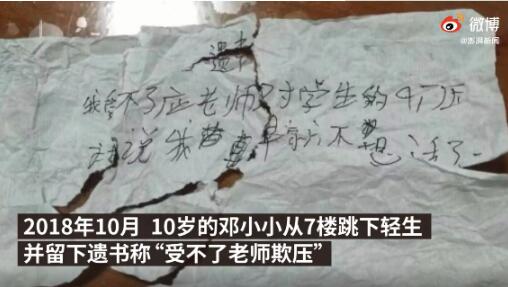 微博
@澎湃新闻
遗书
我受不了 老师对学生的
说我 不想活了
2018年10月 10岁的邓小小从7楼跳下轻生
并留下遗书称“受不了老师欺压”